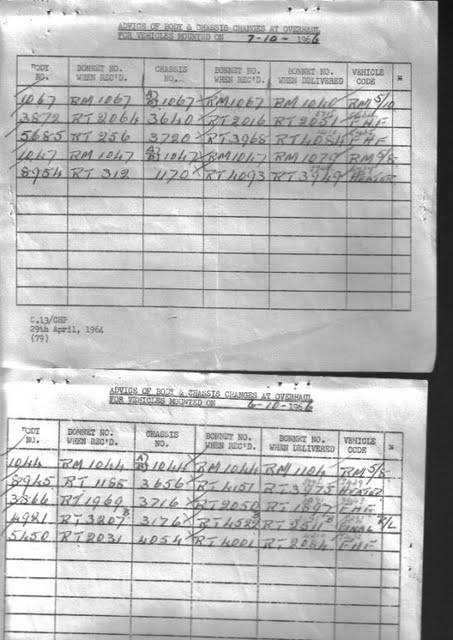 ADVICE OF BODY & CHASSIS CHANGES AT OVERHAUL
FOR VEHICLES MOUNTED ON 7-10-1966
BODY NO. BONNET NO. WHEN REC'D. CHASSIS NO. BONNET NO. WHEN REC'D. BONNET NO. WHEN DELIVERED VEHICLE CODE
1067 RM 1067 1067 RM 1067 RM 1040 RM 5/10
3872 RT 2064 3640 RT 2016 RT 2051 FHF
5685 RT 256 3720 RT 3968 RT 4084 FHF
1047 RM 1047 1047 RM 1047 RM 1079 RM 5/8
8954 RT 312 1170 RT 4093 RT 3949 HEATER
C.13/CHP
29th April, 1964
(79)
ADVICE OF BODY & CHASSIS CHANGES AT OVERHAUL
FOR VEHICLES MOUNTED ON 6-10-1966
BODY NO. BONNET NO. WHEN REC'D. CHASSIS NO. BONNET NO. WHEN REC'D. BONNET NO. WHEN DELIVERED VEHICLE CODE
1044 RM 1044 1044 RM 1044 RM 1104 RM 5/8
8945 RT 1185 3656 RT 4151 RT 3975 HEATER
3866 RT 1969 3716 RT 2050 RT 1897 FHF
4921 RT 3207 3176 RT 4522 RT 2511
5450 RT 2031 4054 RT 4001 RT 2084 FHF